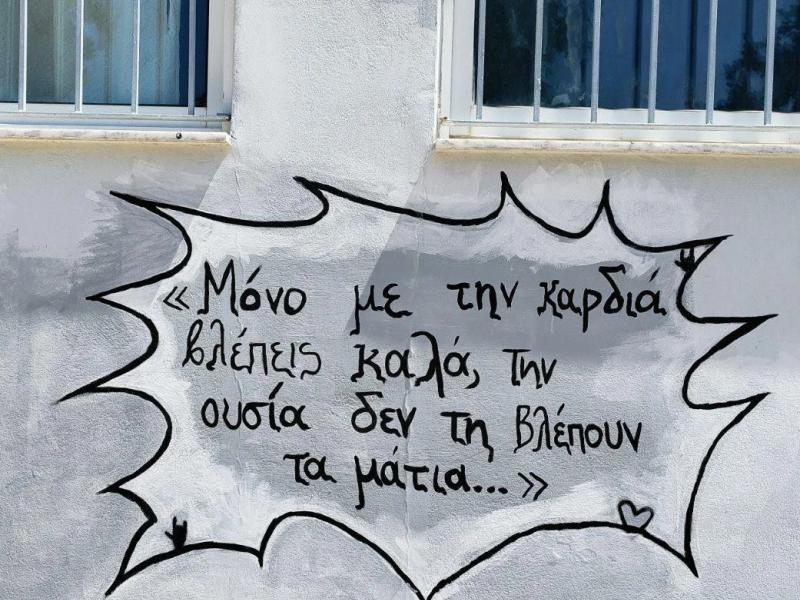 «Μόνο με την καρδιά
βλέπεις καλά, την
ουσία δεν τη βλέπουν
τα μάτια...»